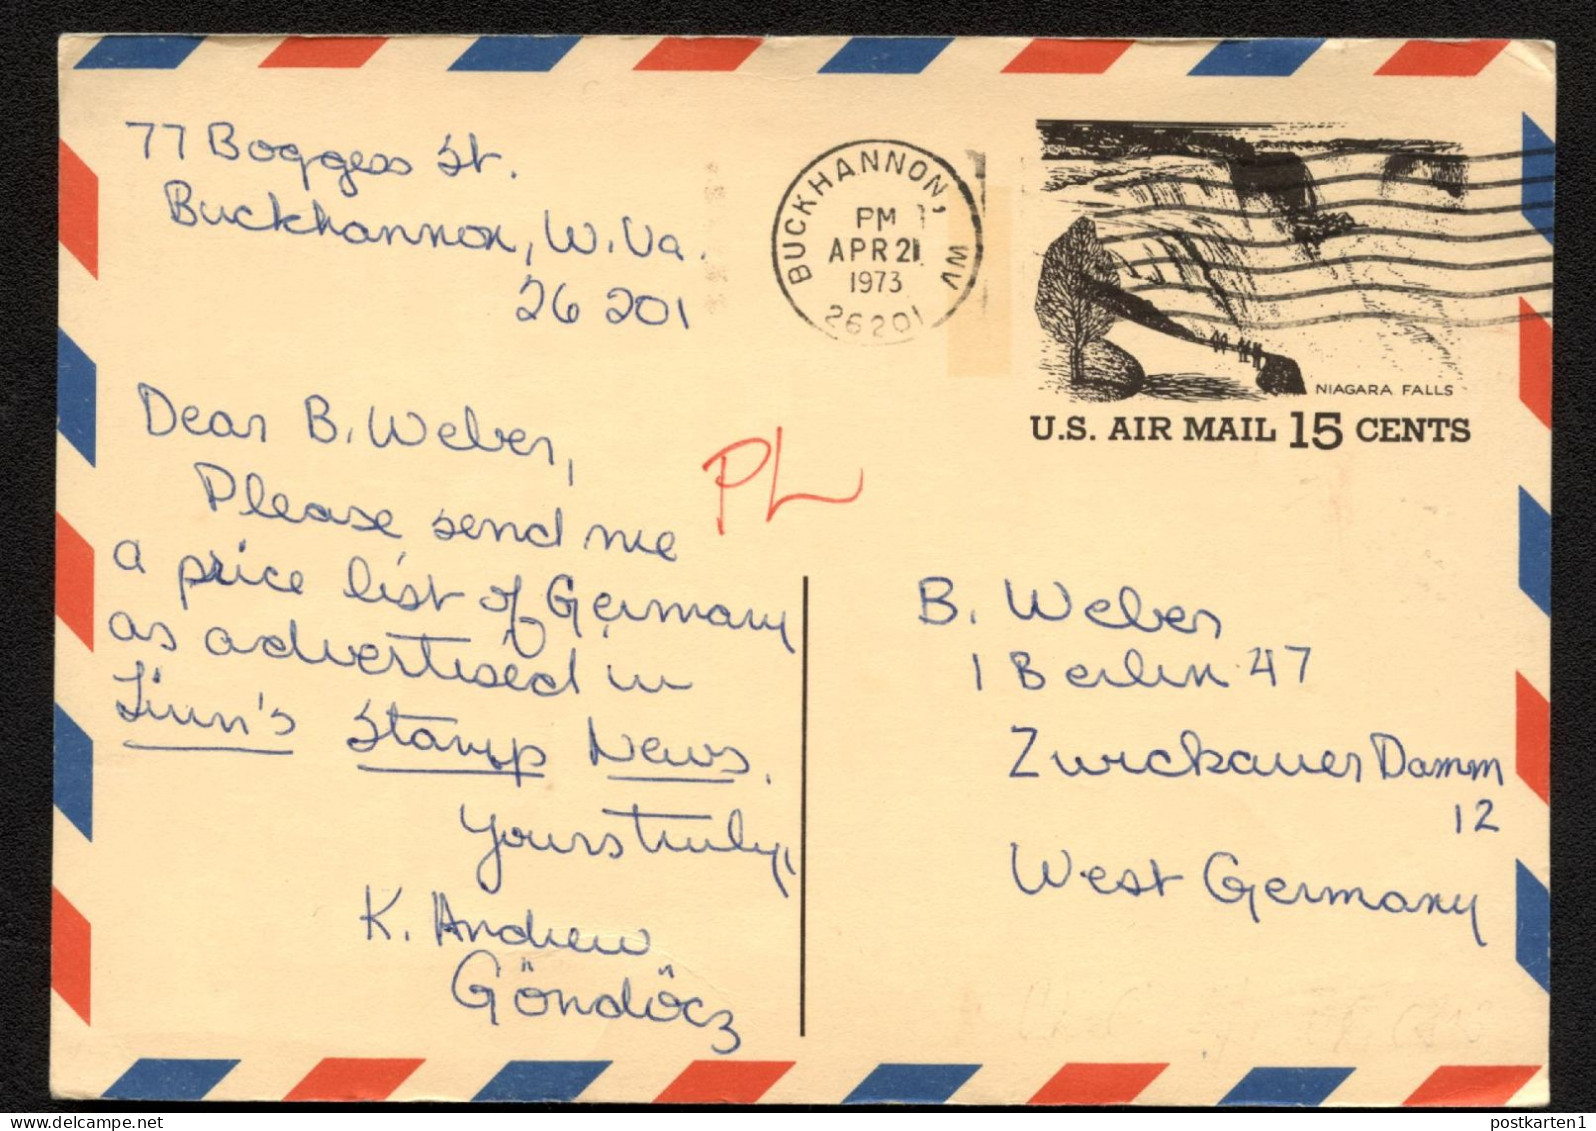 77 Boggess St.
Buckhannon, W. Va.
26 201
BUCKHANNON, WV
PM
APR 21
1973
26201
NIAGARA FALLS
U.S. AIR MAIL 15 CENTS
Dear B. Weber,
Please send me
a price list of Germany
as advertised in
Linn's Stamp News.
Yours truly,
K. Andrew
Göndöcz
PL
B. Weber
1 Berlin 47
Zwickauer Damm
12
West Germany
postkarten1